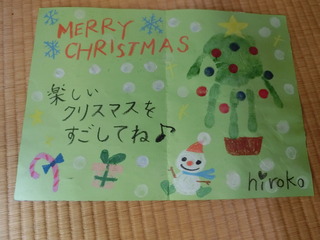 MERRY
CHRISTMAS
楽しい
クリスマスを
すごしてね♪
hiroko